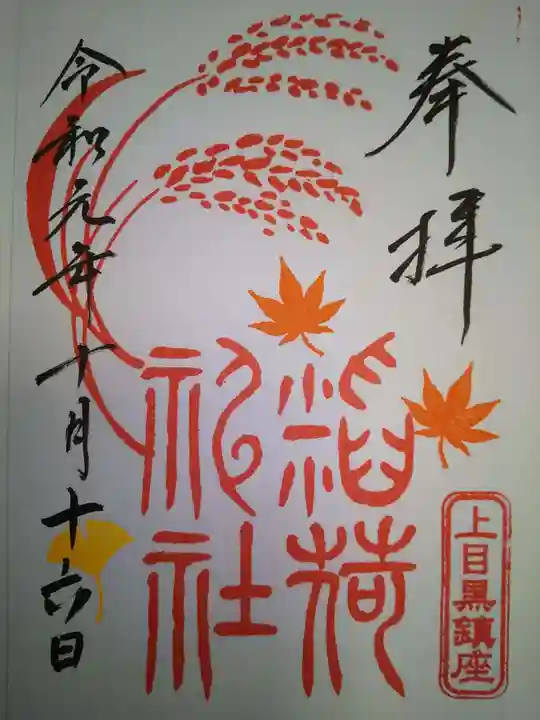 奉拝
上目黒鎮座
稲荷
神社
令和元年十月十六日